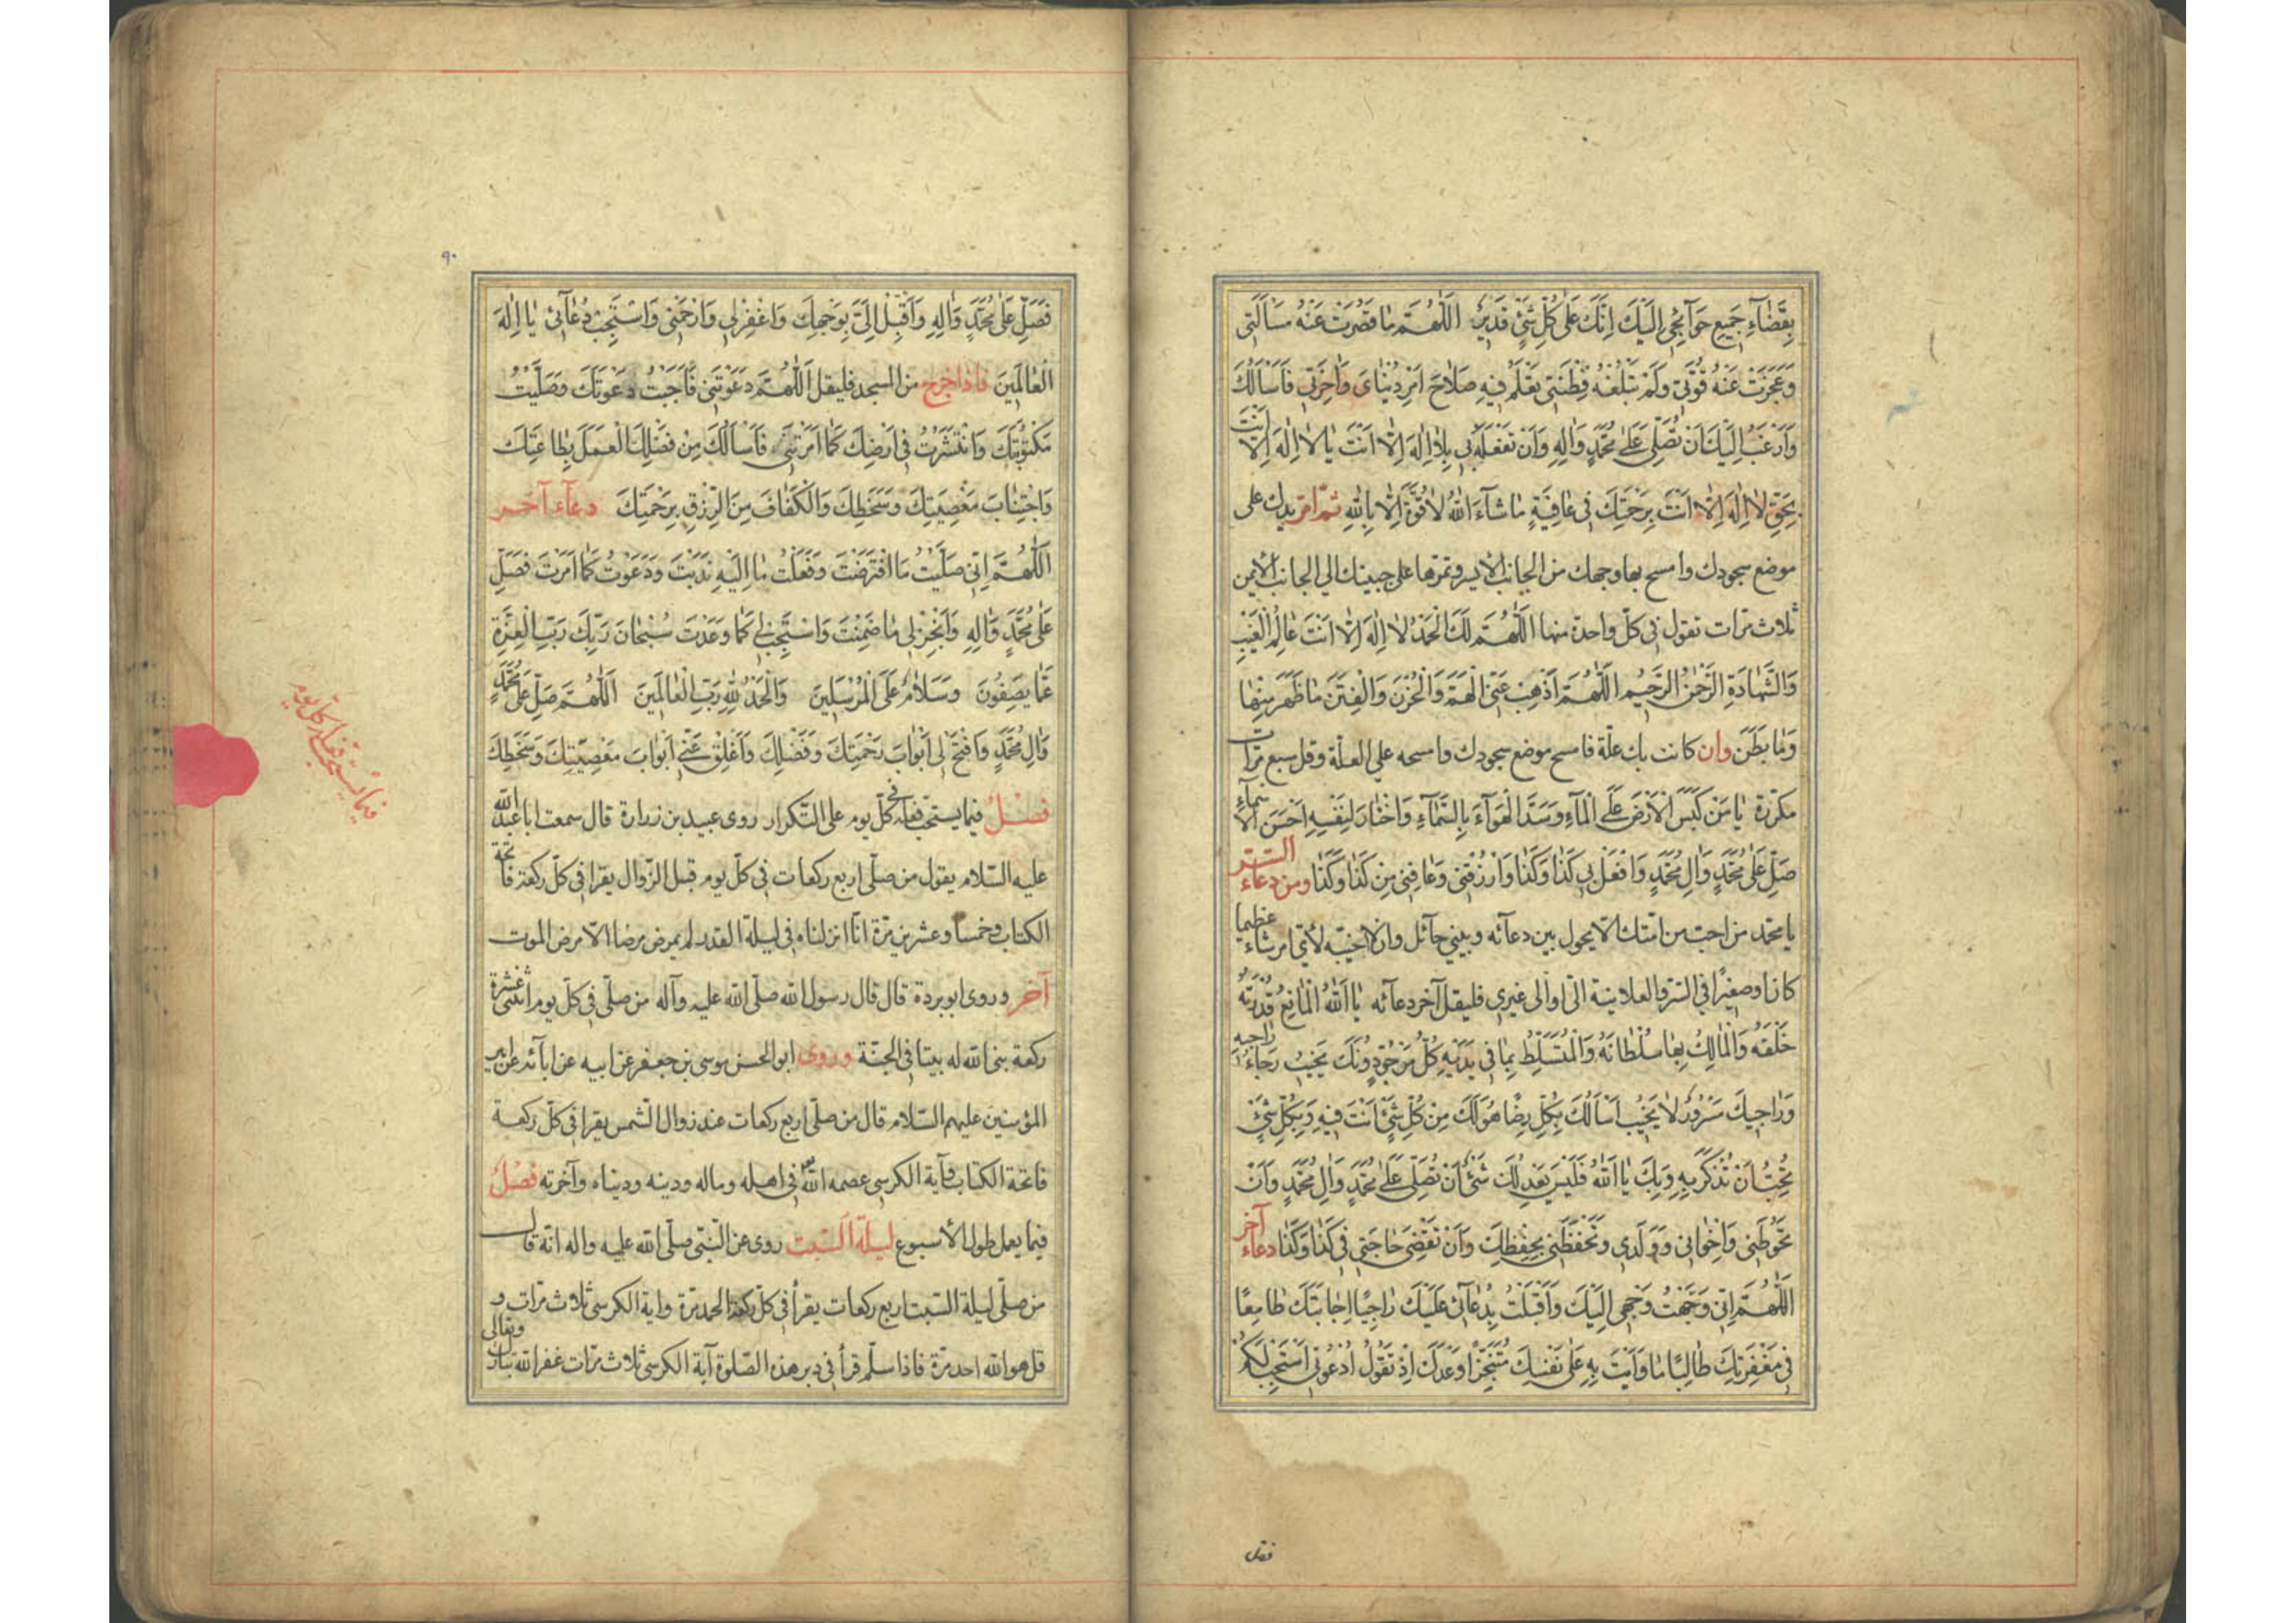 بِقَضَآءِ جَمِيعِ حَوَآئِجِي إِلَيْكَ إِنَّكَ عَلَى كُلِّ شَيْءٍ قَدِيرٌ اَللّٰهُمَّ مَا قَصُرَتْ عَنْهُ مَسْأَلَتِي
وَعَجَزَتْ عَنْهُ قُوَّتِي وَلَمْ تَبْلُغْهُ فِطْنَتِي تَعْلَمُ فِيهِ صَلَاحَ أَمْرِ دُنْيَايَ وَآخِرَتِي فَأَسْأَلُكَ
وَأَرْغَبُ إِلَيْكَ أَنْ تُصَلِّيَ عَلَى مُحَمَّدٍ وَآلِهِ وَأَنْ تَفْعَلَهُ بِي بِلَا إِلٰهَ إِلَّا أَنْتَ يَا لَا إِلٰهَ إِلَّا أَنْتَ
بِحَقِّ لَا إِلٰهَ إِلَّا أَنْتَ بِرَحْمَتِكَ فِي عَافِيَةٍ مَا شَآءَ اللهُ لَا قُوَّةَ إِلَّا بِاللهِ ثمّ امر يدك على
موضع سجودك وامسح بها وجهك من الجانب الأيسر وتمرها على جبينك الي الجانب الأيمن
ثلاث مرّات تقول في كلّ واحدة منها اَللّٰهُمَّ لَكَ الْحَمْدُ لَا إِلٰهَ إِلَّا أَنْتَ عَالِمُ الْغَيْبِ
وَالشَّهَادَةِ الرَّحْمٰنُ الرَّحِيمُ اَللّٰهُمَّ أَذْهِبْ عَنِّي الْهَمَّ وَالْحُزْنَ وَالْفِتَنَ مَا ظَهَرَ مِنْهَا
وَمَا بَطَنَ وان كانت بك علّة فامسح موضع سجودك وامسحه علي العلّة وقل سبع مرّات
مكرّرة يَا مَنْ كَبَسَ الْأَرْضَ عَلَى الْمَآءِ وَسَدَّ الْهَوَآءَ بِالسَّمَآءِ وَاخْتَارَ لِنَفْسِهِ أَحْسَنَ الْأَسْمَآءِ
صَلِّ عَلَى مُحَمَّدٍ وَآلِ مُحَمَّدٍ وَافْعَلْ بِي كَذَا وَكَذَا وَارْزُقْنِي وَعَافِنِي مِنْ كَذَا وَكَذَا ومن دعاء السّر
يا محمّد من احبّ من امّتك الّا يحول بين دعآئه وبيني حآئل وان لا اخيّبه لأيّ امر شاء عظيما
كان او صغيرًا في السّر والعلانية اليّ او الى غيري فليقل آخر دعآئه يَا اَللهُ الْمَانِعُ قُدْرَتُهُ
خَلْقَهُ وَالْمَالِكُ بِهَا سُلْطَانَهُ وَالْمُتَسَلِّطُ بِمَا فِي يَدَيْهِ كُلُّ مَرْجُوٍّ دُونَكَ يَخِيبُ رَجَآءُ رَاجِيهِ
وَرَاجِيكَ مَسْرُورٌ لَا يَخِيبُ أَسْأَلُكَ بِكُلِّ رِضًا هُوَ لَكَ مِنْ كُلِّ شَيْءٍ أَنْتَ فِيهِ وَبِكُلِّ شَيْءٍ
تُحِبُّ أَنْ تُذْكَرَ بِهِ وَبِكَ يَا اَللهُ فَلَيْسَ يَعْدِلُكَ شَيْءٌ أَنْ تُصَلِّيَ عَلَى مُحَمَّدٍ وَآلِ مُحَمَّدٍ وَأَنْ
تَحُوطَنِي وَإِخْوَانِي وَوَلَدِي وَتَحْفَظَنِي بِحِفْظِكَ وَأَنْ تَقْضِيَ حَاجَتِي فِي كَذَا وَكَذَا دعاء آخر
اَللّٰهُمَّ إِنِّي وَجَّهْتُ وَجْهِي إِلَيْكَ وَأَقْبَلْتُ بِدُعَآئِي عَلَيْكَ رَاجِيًا إِجَابَتَكَ طَامِعًا
فِي مَغْفِرَتِكَ طَالِبًا مَا وَأَيْتَ بِهِ عَلَى نَفْسِكَ مُتَنَجِّزًا وَعْدَكَ إِذْ تَقُولُ اُدْعُونِي أَسْتَجِبْ لَكُمْ
فصل
٩٠
فَصَلِّ عَلَى مُحَمَّدٍ وَآلِهِ وَأَقْبِلْ إِلَيَّ بِوَجْهِكَ وَاغْفِرْ لِي وَارْحَمْنِي وَاسْتَجِبْ دُعَآئِي يَا إِلٰهَ
الْعَالَمِينَ فاذا خرج من المسجد فليقل اَللّٰهُمَّ دَعَوْتَنِي فَأَجَبْتُ دَعْوَتَكَ وَصَلَّيْتُ
مَكْتُوبَتَكَ وَانْتَشَرْتُ فِي أَرْضِكَ كَمَا أَمَرْتَنِي فَأَسْأَلُكَ مِنْ فَضْلِكَ الْعَمَلَ بِطَاعَتِكَ
وَاجْتِنَابَ مَعْصِيَتِكَ وَسَخَطِكَ وَالْكَفَافَ مِنَ الرِّزْقِ بِرَحْمَتِكَ دعآء آخر
اَللّٰهُمَّ إِنِّي صَلَّيْتُ مَا افْتَرَضْتَ وَفَعَلْتُ مَا إِلَيْهِ نَدَبْتَ وَدَعَوْتُ كَمَا أَمَرْتَ فَصَلِّ
عَلَى مُحَمَّدٍ وَآلِهِ وَأَنْجِزْ لِي مَا ضَمِنْتَ وَاسْتَجِبْ لِي كَمَا وَعَدْتَ سُبْحَانَ رَبِّكَ رَبِّ الْعِزَّةِ
عَمَّا يَصِفُونَ وَسَلَامٌ عَلَى الْمُرْسَلِينَ وَالْحَمْدُ لِلّٰهِ رَبِّ الْعَالَمِينَ اَللّٰهُمَّ صَلِّ عَلَى مُحَمَّدٍ
وَآلِ مُحَمَّدٍ وَافْتَحْ لِي أَبْوَابَ رَحْمَتِكَ وَفَضْلِكَ وَأَغْلِقْ عَنِّي أَبْوَابَ مَعْصِيَتِكَ وَسَخَطِكَ
فصل فيما يستحبّ فعله في كلّ يوم على التّكرار روى عبيد بن زرارة قال سمعت ابا عبد الله
عليه السّلام يقول من صلّى اربع ركعات في كلّ يوم قبل الزّوال يقرا في كلّ ركعة فاتحة
الكتاب وخمسا وعشرين مرّة انّا انزلناه في ليلة القدر لم يمرض مرضا الّا مرض الموت
آخر وروى ابو بردة قال قال رسول الله صلّى الله عليه وآله من صلّى في كلّ يوم اثنتي عشرة
ركعة بنى الله له بيتا في الجنّة وروى ابو الحسن موسى بن جعفر عن ابيه عن ابآئه عن امير
المؤمنين عليهم السّلام قال من صلّى اربع ركعات عند زوال الشّمس يقرا في كلّ ركعة
فاتحة الكتاب وآية الكرسي عصمه الله في اهله وماله ودينه ودنياه وآخرته فصل
فيما يعمل طول الأسبوع ليلة السّبت روى عن النّبيّ صلّى الله عليه واله انّه قال
من صلّى ليلة السّبت اربع ركعات يقرأ في كلّ ركعة الحمد مرّة واية الكرسى ثلاث مرّات و
قل هو الله احد مرّة فاذا سلّم قرأ في دبر هذه الصّلوة آية الكرسى ثلاث مرّات غفر الله تبارك وتعالى
فيما يستحبّ فعله في كلّ يوم